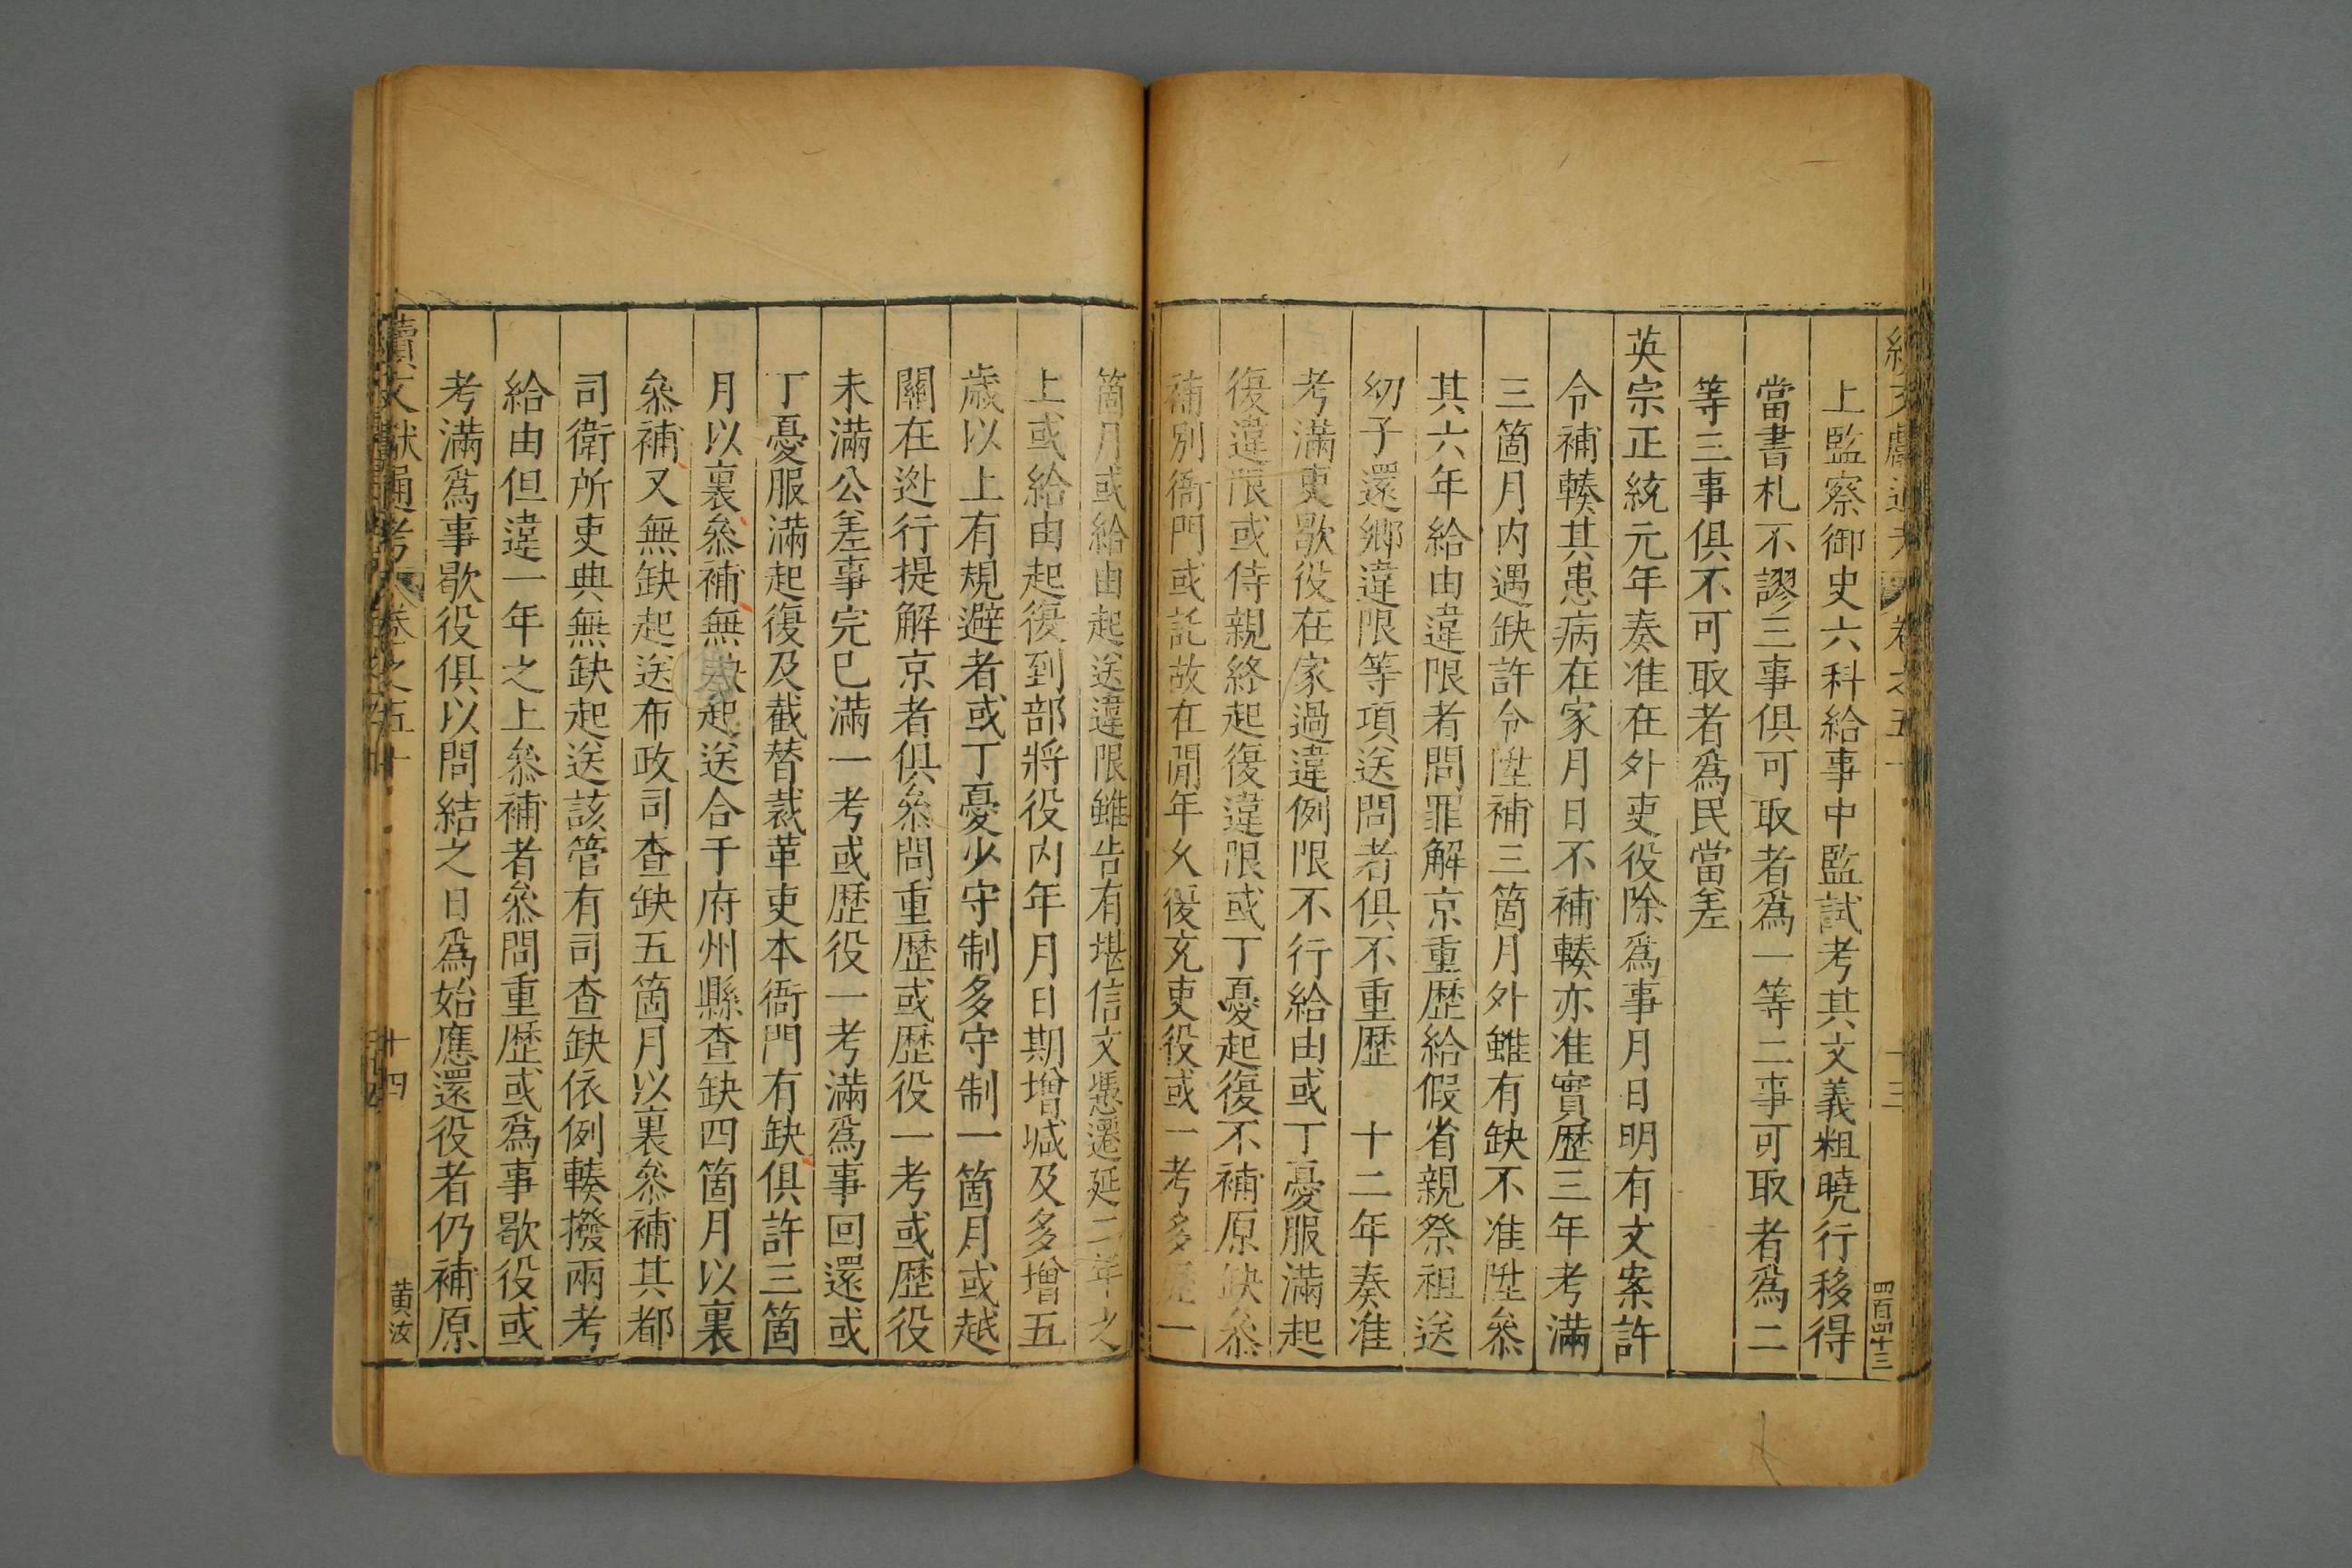 續文獻通考 卷之五十 十三 四百四十三
上監察御史六科給事中監試考其文義粗曉行移得
當書札不謬三事俱可取者爲一等二事可取者爲二
等三事俱不可取者爲民當差
英宗正統元年奏准在外吏役除爲事月日明有文案許
令補輳其患病在家月日不補輳亦准實歷三年考滿
三箇月内遇缺許令陞補三箇月外雖有缺不准陞叅
其六年給由違限者問罪解京重歷給假省親祭祖送
幼子還鄉違限等項送問者俱不重歷 十二年奏准
考滿吏歇役在家過違例限不行給由或丁憂服滿起
復違限或侍親終起復違限或丁憂起復不補原缺叅
補別衙門或託故在閒年久復充吏役或一考多歷一
箇月或給由起送違限雖告有堪信文憑遷延二年之
上或給由起復到部將役内年月日期增減及多增五
歲以上有規避者或丁憂少守制多守制一箇月或越
關在逃行提解京者俱叅問重歷或歷役一考或歷役
未滿公差事完已滿一考或歷役一考滿爲事回還或
丁憂服滿起復及截替裁革吏本衙門有缺俱許三箇
月以裏叅補無缺起送合干府州縣查缺四箇月以裏
叅補又無缺起送布政司查缺五箇月以裏叅補其都
司衛所吏典無缺起送該管有司查缺依例輳撥兩考
給由但違一年之上叅補者叅問重歷或爲事歇役或
考滿爲事歇役俱以問結之日爲始應還役者仍補原
續文獻通考 卷之五十 十四 黄汝